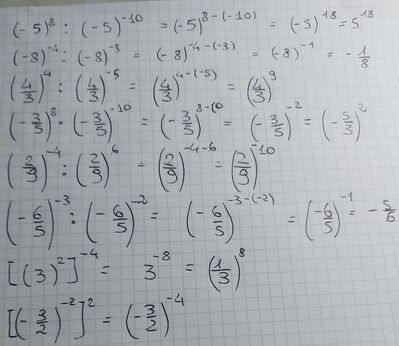 (-5)⁸ : (-5)⁻¹⁰ = (-5)⁸⁻⁽⁻¹⁰⁾ = (-5)¹⁸ = 5¹⁸
(-8)⁻⁴ : (-8)⁻³ = (-8)⁻⁴⁻⁽⁻³⁾ = (-8)⁻¹ = - 1/8
(4/3)⁴ : (4/3)⁻⁵ = (4/3)⁴⁻⁽⁻⁵⁾ = (4/3)⁹
(-3/5)⁸ · (-3/5)⁻¹⁰ = (-3/5)⁸⁻¹⁰ = (-3/5)⁻² = (-5/3)²
(2/9)⁻⁴ : (2/9)⁶ = (2/9)⁻⁴⁻⁶ = (2/9)⁻¹⁰
(-6/5)⁻³ : (-6/5)⁻² = (-6/5)⁻³⁻⁽⁻²⁾ = (-6/5)⁻¹ = - 5/6
[(3)²]⁻⁴ = 3⁻⁸ = (1/3)⁸
[(-3/2)⁻²]² = (-3/2)⁻⁴